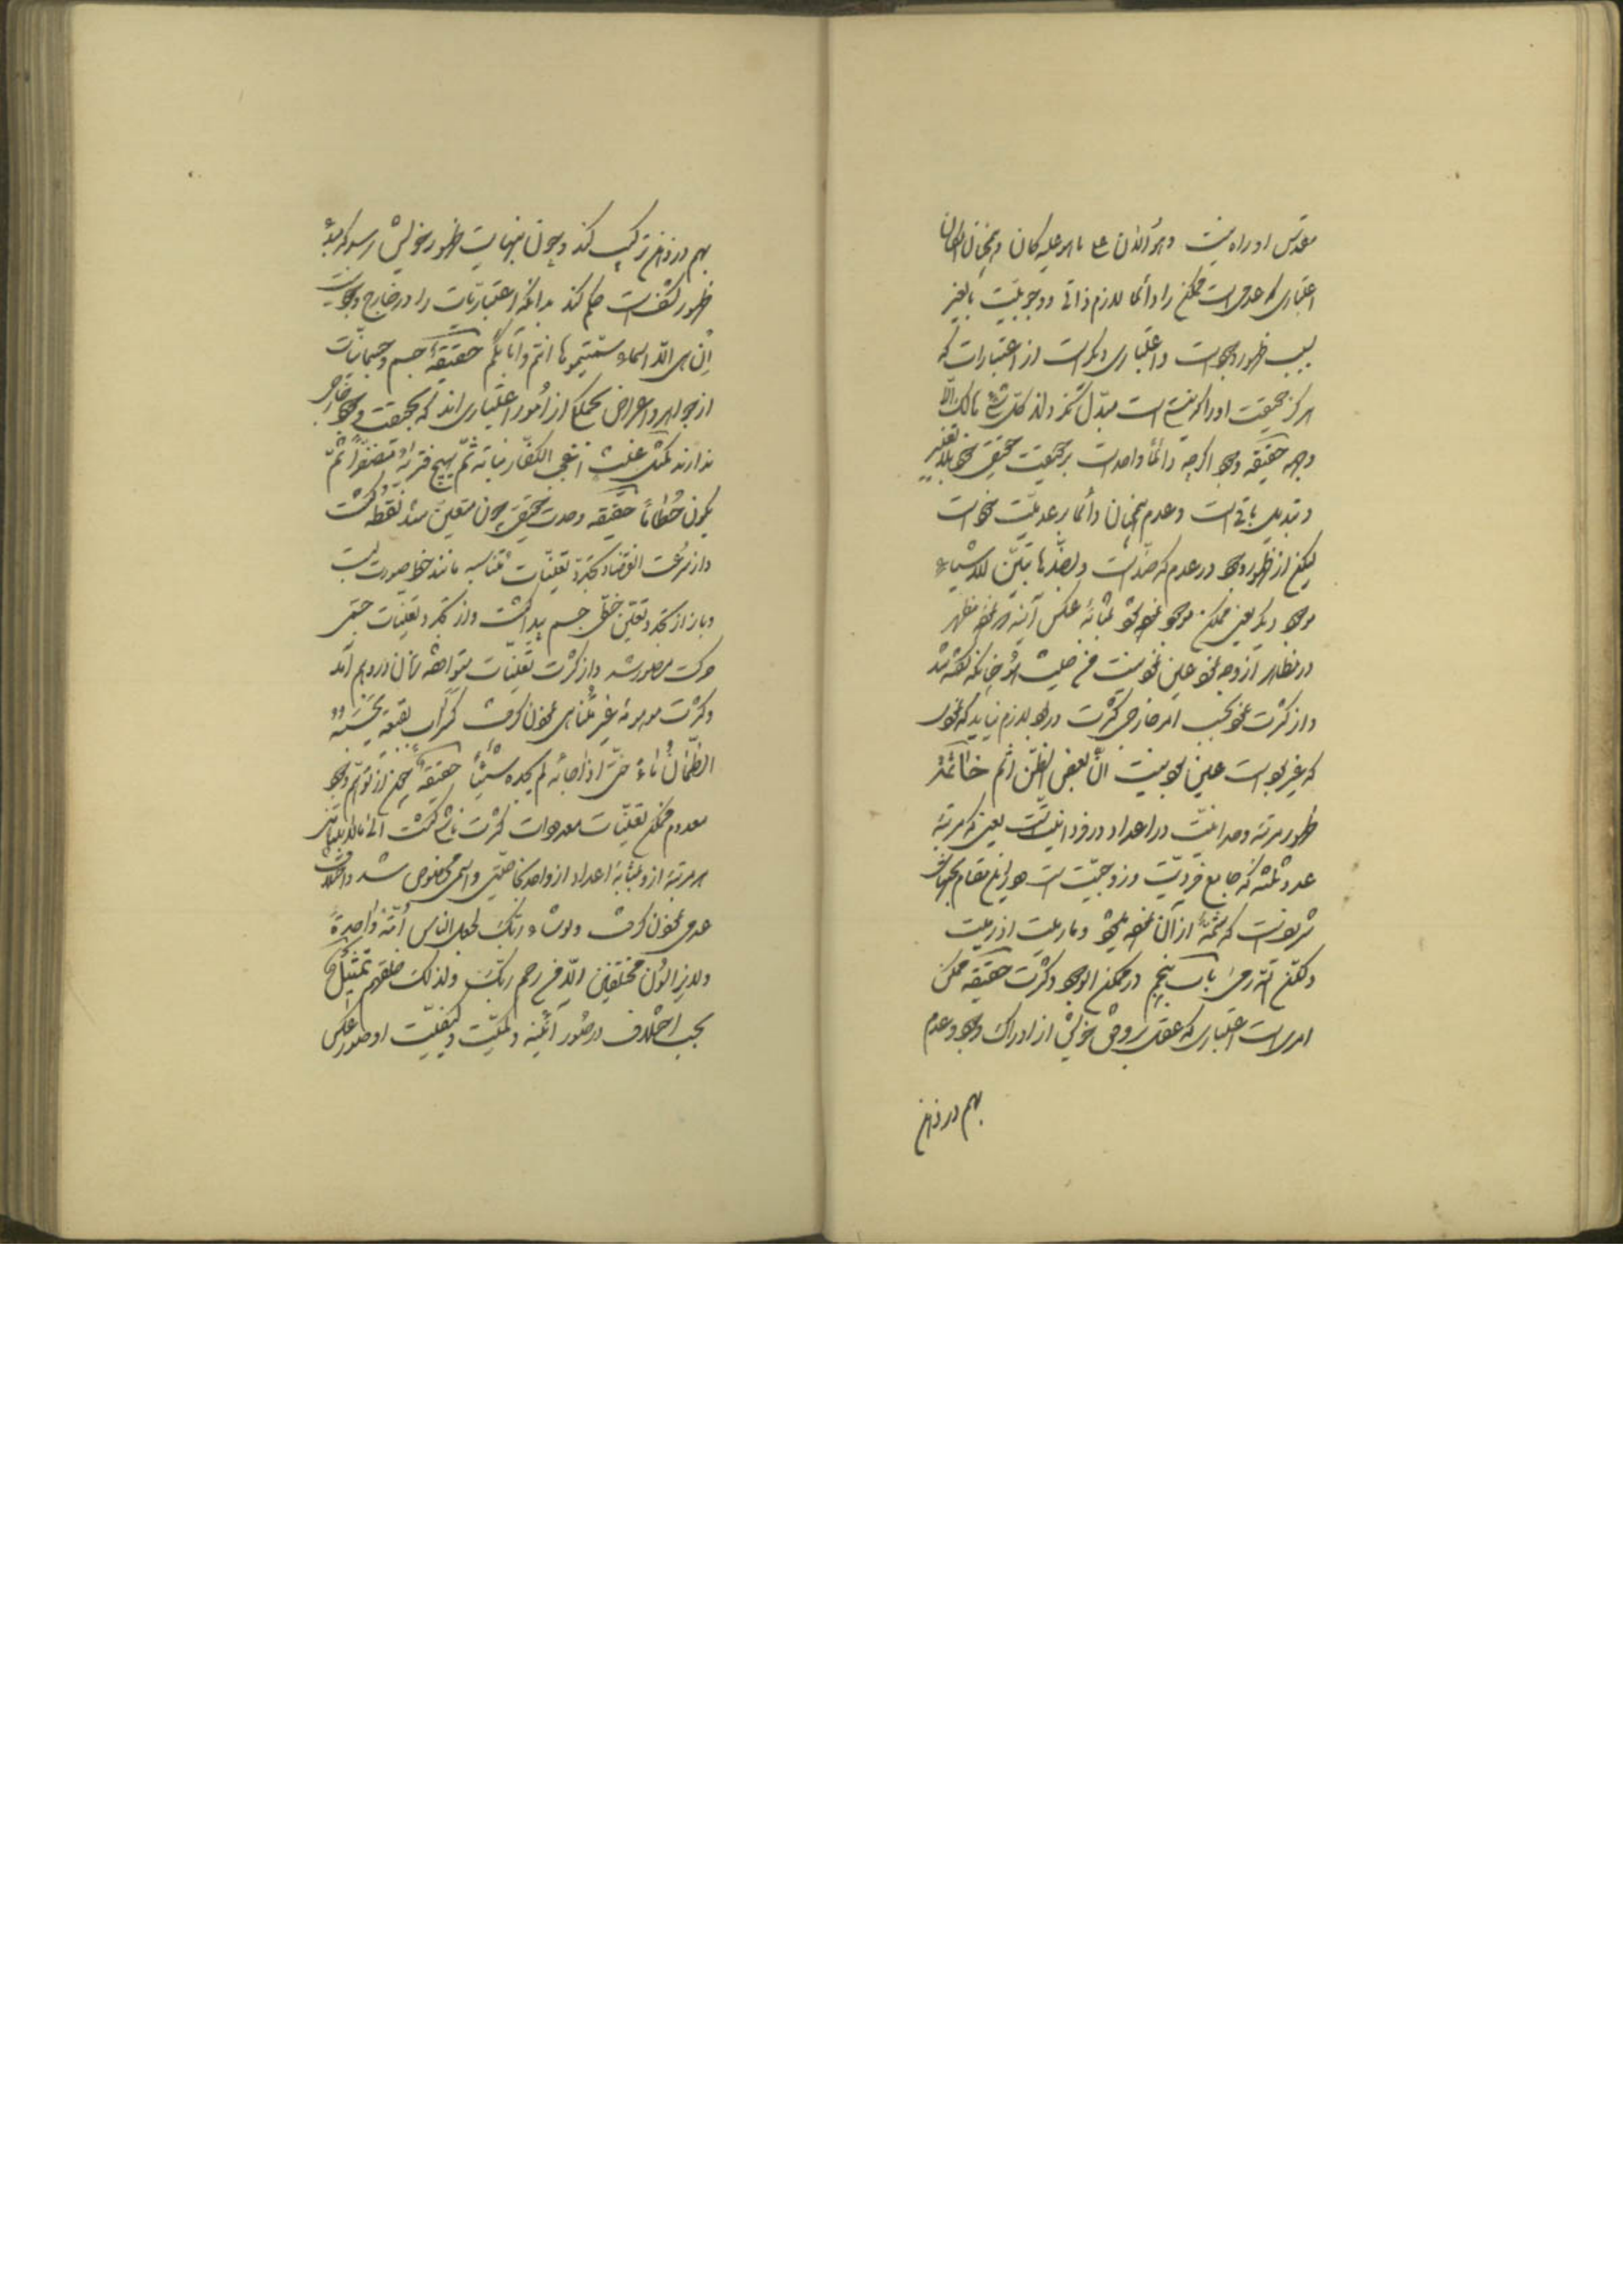 مقدس او راه نیست وهو الآن علی ما هو علیه کان وهمچنان امکان
اعتباری که عدمی است ممکن را دائما لازم ذاتی و وجوبیت بالغیر
بسبب ظهور وجود است و اعتباری دیگر است از اعتبارات که
هرگز حقیقت او را که نیستی است مبدل نگرداند کل شیء هالک الا
وجهه حقیقة وجود اگرچه دائما واحد است بر حقیقت حقیقی خود بلا تغییر
و تبدیل باقی است و عدم همچنان دائما بر عدمیت خود است
لیکن از ظهور وجود در عدم که ضد است وبضدها تتبین الاشیاء
موجود دیگر یعنی ممکن موجود نمود بمثابهٔ عکس آینه هر نمود مظهر
در مظاهر از وجه نمود عین نمود نیست من حیث هو چنانکه گفته شد
و از کثرت نمود بحسب امر خارجی کثرت در بود لازم نیاید که نمود
که غیر بود است عین بود نیست ان بعض الظن اثم خاتمة
ظهور مرتبهٔ وحدانیت در اعداد در فردانیت است یعنی که مرتبهٔ
عدد ثلثه که جامع فردیت و زوجیت است
که شمهٔ از آن نموده میشود وما رمیت اذ رمیت
ولکن الله رمی باب پنجم در ممکن الوجود و کثرت حقیقة ممکن
امریست اعتباری که عقل بروفق خویش از ادراک وجود و عدم
بهم در ذهن
بهم در ذهن ترکیب کند و چون بنهایت ظهور خویش رسد که مبدأ
ظهور کشف است حکم کند بدانکه اعتباریات را در خارج وجود نیست
إن هی الا اسماء سمیتموها انتم وآباؤکم حقیقة جسم و جسمانیات
از جواهر و اعراض بجملگی از امور اعتباری اند که بحقیقت وجود خارجی
ندارند کمثل غیث اعجب الکفار نباته ثم یهیج فتراه مصفرا ثم
یکون حطاما حقیقة وحدت حقیقی چون متعین شد نقطه گشت
و از سرعت انقضاء و تجدد تعینات متناسبه مانند خط صورت بست
و باز از تجدد تعین خطی جسم پیدا گشت و از تجدد تعینات جسمی
حرکت مصور شد و از کثرت تعینات متوافقه زمان در وهم آمد
و کثرت موهومهٔ غیر متناهی نمودن گرفت کسراب بقیعة یحسبه
الظمآن ماء حتی اذا جاءه لم یجده شیئا حقیقة چون از توهم وجود
معدوم ممکن تعینات معدومات کثرت ناشی گشت الی ما لا یتناهی
هر مرتبهٔ از و بمثابهٔ اعداد از واحد بخاصیتی و اسمی مخصوص شد و اختلاف
عدمی نمودن گرفت ولو شاء ربک لجعل الناس امة واحدة
ولا یزالون مختلفین الا من رحم ربک ولذلک خلقهم تمثیل
بحسب اختلاف در صور آئینه و کمیت و کیفیت او صور عکس